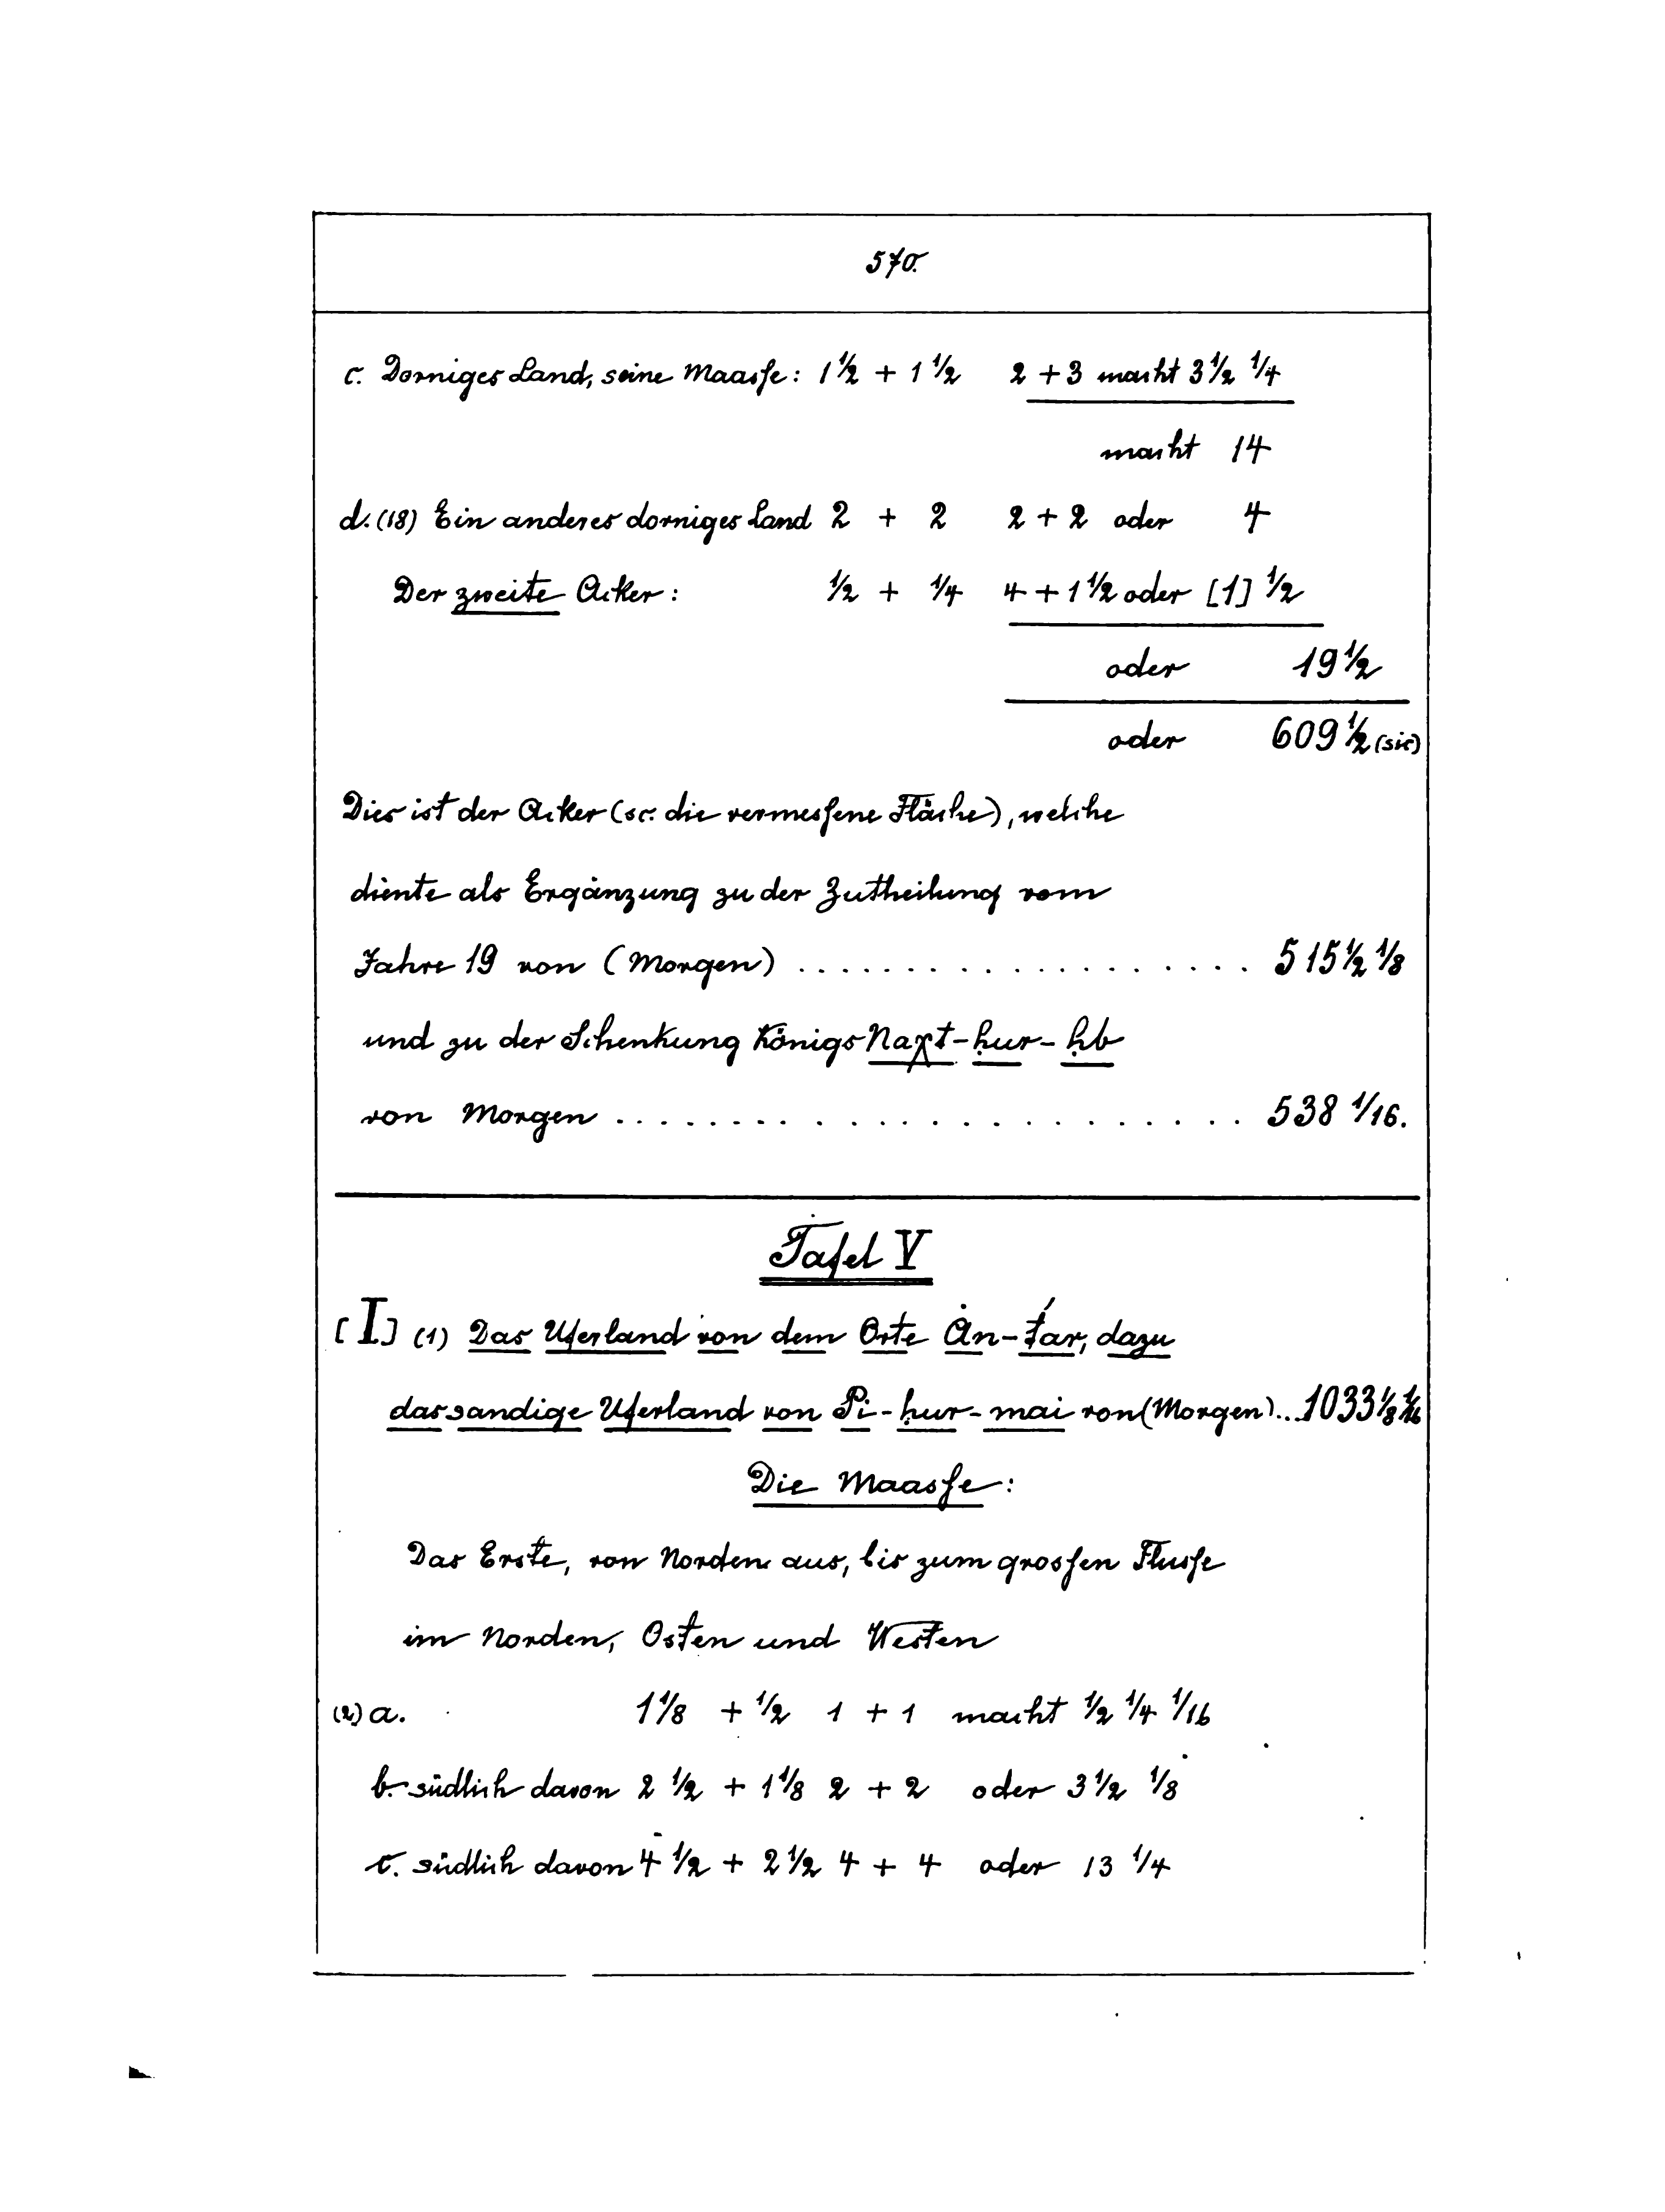 570.
c. Dorniges Land, seine Maasse: 1 1/2 + 1 1/2 2 + 3 macht 3 1/2 1/4
macht 14
d. (18) Ein anderes dorniges Land 2 + 2 2 + 2 oder 4
Der zweite Acker: 1/2 + 1/4 4 + 1 1/2 oder [1] 1/2
oder 19 1/2
oder 609 1/2 (sic)
Dies ist der Acker (sc. die vermessene Fläche), welche
diente als Ergänzung zu der Zutheilung vom
Jahre 19 von (Morgen) .................. 515 1/2 1/8
und zu der Schenkung Königs Naχt-ḥur-ḥb
von Morgen ........................ 538 1/16.
Tafel V
[I] (1) Das Uferland von dem Orte Ȧn-ṭar, dazu
das sandige Uferland von Pi-ḥur-mai von (Morgen)... 1033 1/8 1/16
Die Maasse:
Das Erste, von Norden aus, bis zum grossen Flusse
im Norden, Osten und Westen
(2) a. 1 1/8 + 1/2 1 + 1 macht 1/2 1/4 1/16
b. südlich davon 2 1/2 + 1 1/8 2 + 2 oder 3 1/2 1/8
c. südlich davon 4 1/2 + 2 1/2 4 + 4 oder 13 1/4